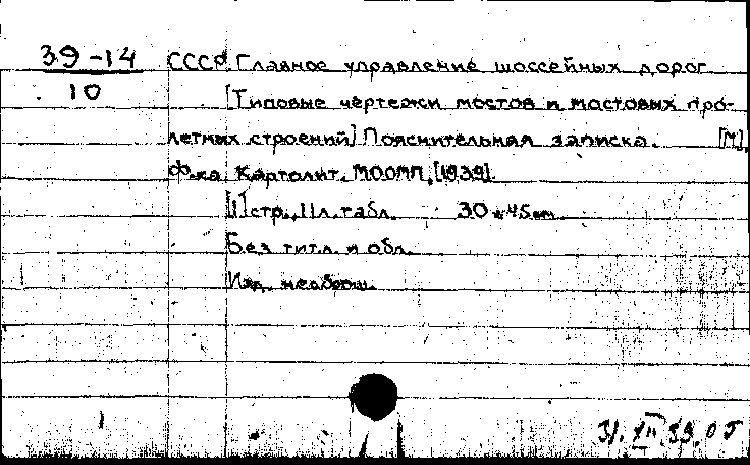 39-14
10
СССР. Главное управление шоссейных дорог
[Типовые чертежи мостов и мостовых про-
летных строений] Пояснительная записка. [М],
Ф-ка Картолит. МООМП, [1939].
[1] стр., 11 л. табл. 30 × 45 см.
Без титл. и обл.
Изд. неброш.